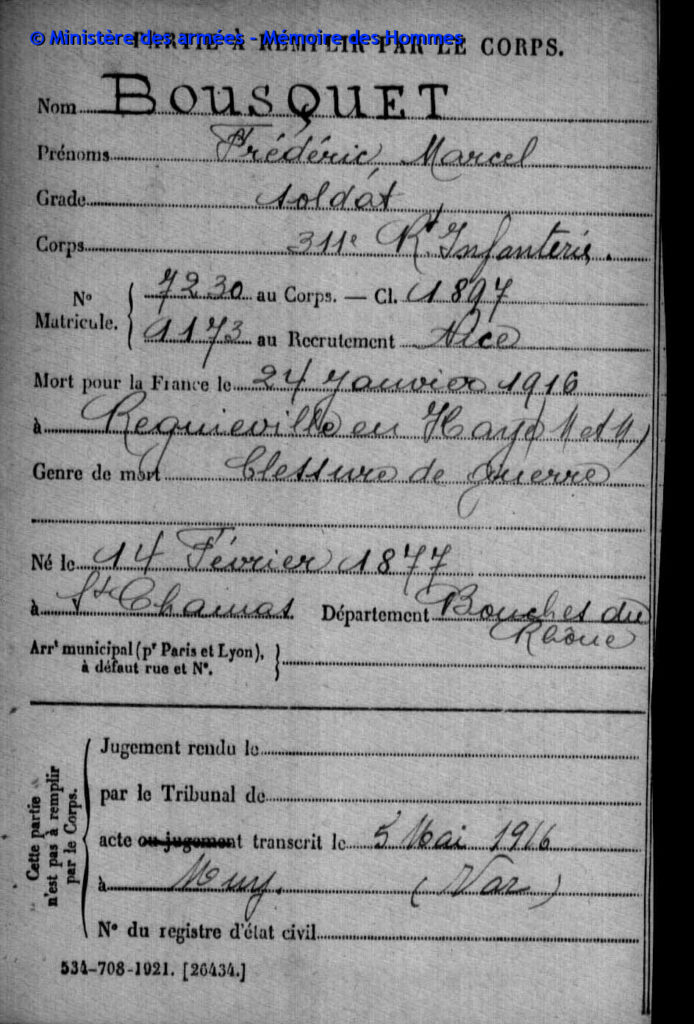 © Ministère des armées - Mémoire des Hommes
PARTIE À REMPLIR PAR LE CORPS.
Nom BOUSQUET
Prénoms Frédéric Marcel
Grade soldat
Corps 311e Rt Infanterie.
N° Matricule. { 7230 au Corps. — Cl. 1897
9173 au Recrutement Nice
Mort pour la France le 24 Janvier 1916
à Regnieville en Haye (M et M)
Genre de mort blessure de guerre
Né le 14 Février 1877
à St Chamas. Département Bouches du
Rhône
Arrt municipal (pr Paris et Lyon),
à défaut rue et N°. }
Cette partie n'est pas à remplir par le Corps.
Jugement rendu le
par le Tribunal de
acte ou jugement transcrit le 5 Mai 1916
à Muy. (Var)
N° du registre d'état civil
534-708-1921. [26434.]